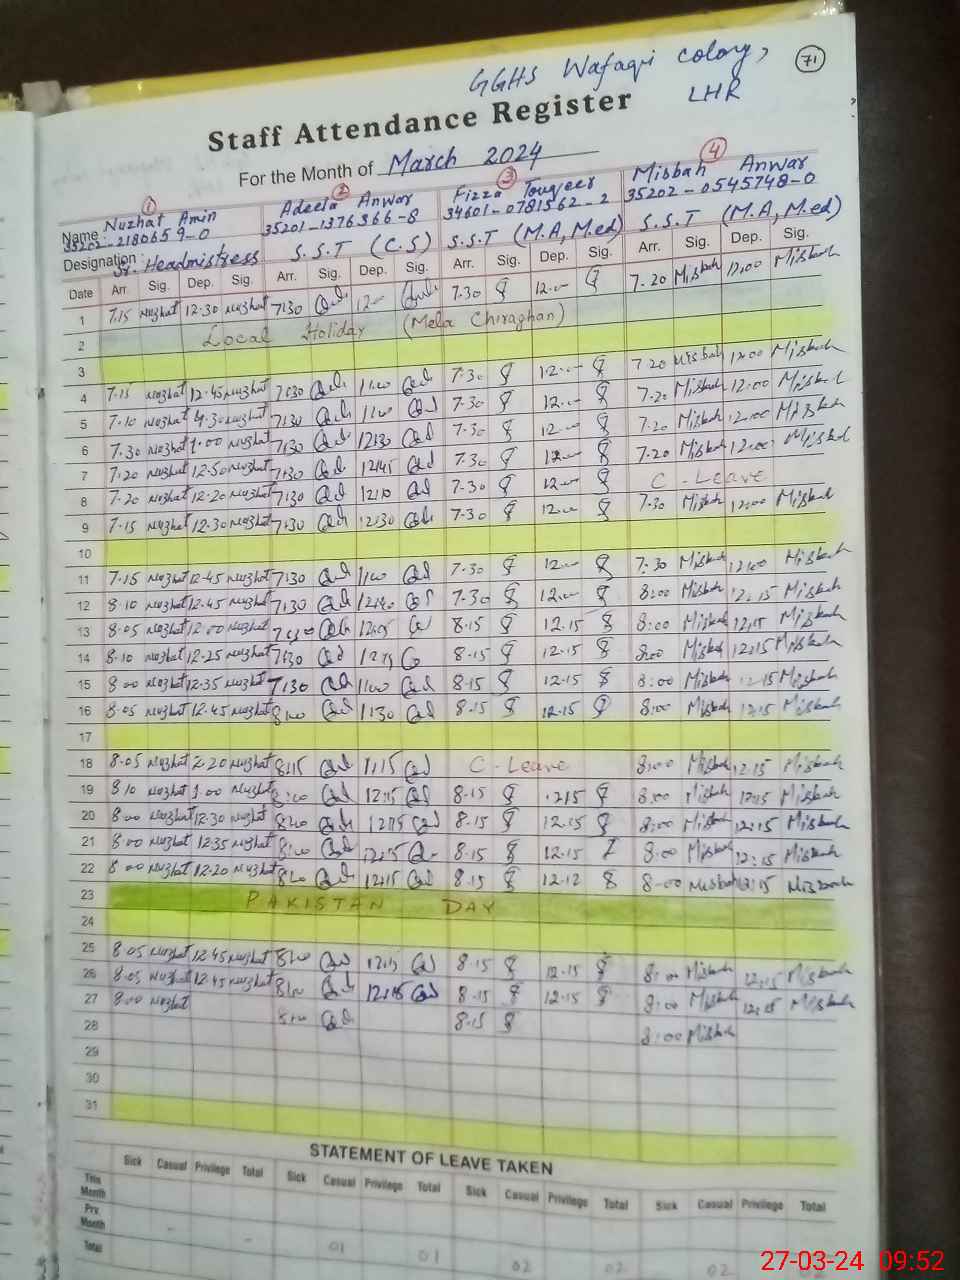 GGHS Wafaqi colony,
71
LHR
Staff Attendance Register
For the Month of March 2024
1 2 3 4
Name : Nuzhat Amin Adeela Anwar Fizza Touqeer Misbah Anwar
35202-2180659-0 35201-1376366-8 34601-0781562-2 35202-0545748-0
Designation : Sr. Headmistress S.S.T (C.S) S.S.T (M.A, M.ed) S.S.T (M.A, M.ed)
Date Arr. Sig. Dep. Sig. Arr. Sig. Dep. Sig. Arr. Sig. Dep. Sig. Arr. Sig. Dep. Sig.
1 7.15 Nuzhat 12.30 Nuzhat 7:30 7.30 12.00 7.20 Misbah 12:00 Misbah
2 Local Holiday (Mela Chiraghan)
3
4 7.15 Nuzhat 12.45 Nuzhat 7:30 11:00 7.30 12.00 7.20 Misbah 12:00 Misbah
5 7.10 Nuzhat 4.30 Nuzhat 7:30 11:00 7.30 12.00 7.20 Misbah 12:00 Misbah
6 7.30 Nuzhat 1.00 Nuzhat 7:30 12:30 7.30 12.00 7.20 Misbah 12:00 Misbah
7 7.20 Nuzhat 12.50 Nuzhat 7:30 12:45 7.30 12.00 7.20 Misbah 12:00 Misbah
8 7.20 Nuzhat 12.20 Nuzhat 7:30 12:10 7.30 12.00 C-Leave
9 7.15 Nuzhat 12.30 Nuzhat 7:30 12:30 7.30 12.00 7.30 Misbah 12:00 Misbah
10
11 7.15 Nuzhat 12.45 Nuzhat 7:30 11:00 7.30 12.00 7.30 Misbah 12:00 Misbah
12 8.10 Nuzhat 12.45 Nuzhat 7:30 7.30 12.00 8:00 Misbah 12:15 Misbah
13 8.05 Nuzhat 12.00 Nuzhat 7:30 12:05 8.15 12.15 8:00 Misbah 12:15 Misbah
14 8.10 Nuzhat 12.25 Nuzhat 7:30 8.15 12.15 8:00 Misbah 12:15 Misbah
15 8.00 Nuzhat 12.35 Nuzhat 7:30 11:00 8.15 12.15 8:00 Misbah 12:15 Misbah
16 8.05 Nuzhat 12.45 Nuzhat 8:00 11:30 8.15 12.15 8:00 Misbah 12:15 Misbah
17
18 8.05 Nuzhat 2.20 Nuzhat 8:15 11:15 C-Leave 8:00 Misbah 12:15 Misbah
19 8.10 Nuzhat 1.00 Nuzhat 8:00 12:15 8.15 12.15 8:00 Misbah 12:15 Misbah
20 8.00 Nuzhat 12.30 Nuzhat 8:00 12:15 8.15 12.15 8:00 Misbah 12:15 Misbah
21 8.00 Nuzhat 12.35 Nuzhat 8:00 12:15 8.15 12.15 8:00 Misbah 12:15 Misbah
22 8.00 Nuzhat 12.20 Nuzhat 8:00 12:15 8.15 12.12 8.00 Misbah 12:15 Misbah
23 PAKISTAN DAY
24
25 8.05 Nuzhat 12.45 Nuzhat 8:00 12:15 8.15 12.15 8:00 Misbah 12:15 Misbah
26 8.05 Nuzhat 12.45 Nuzhat 8:00 12:15 8.15 12.15 8:00 Misbah 12:15 Misbah
27 8.00 Nuzhat 8:00 8.15 8:00 Misbah
28
29
30
31
STATEMENT OF LEAVE TAKEN
Sick Casual Privilege Total Sick Casual Privilege Total Sick Casual Privilege Total Sick Casual Privilege Total
This Month
Prv. Month
Total 01 01 02 02 02
27-03-24 09:52